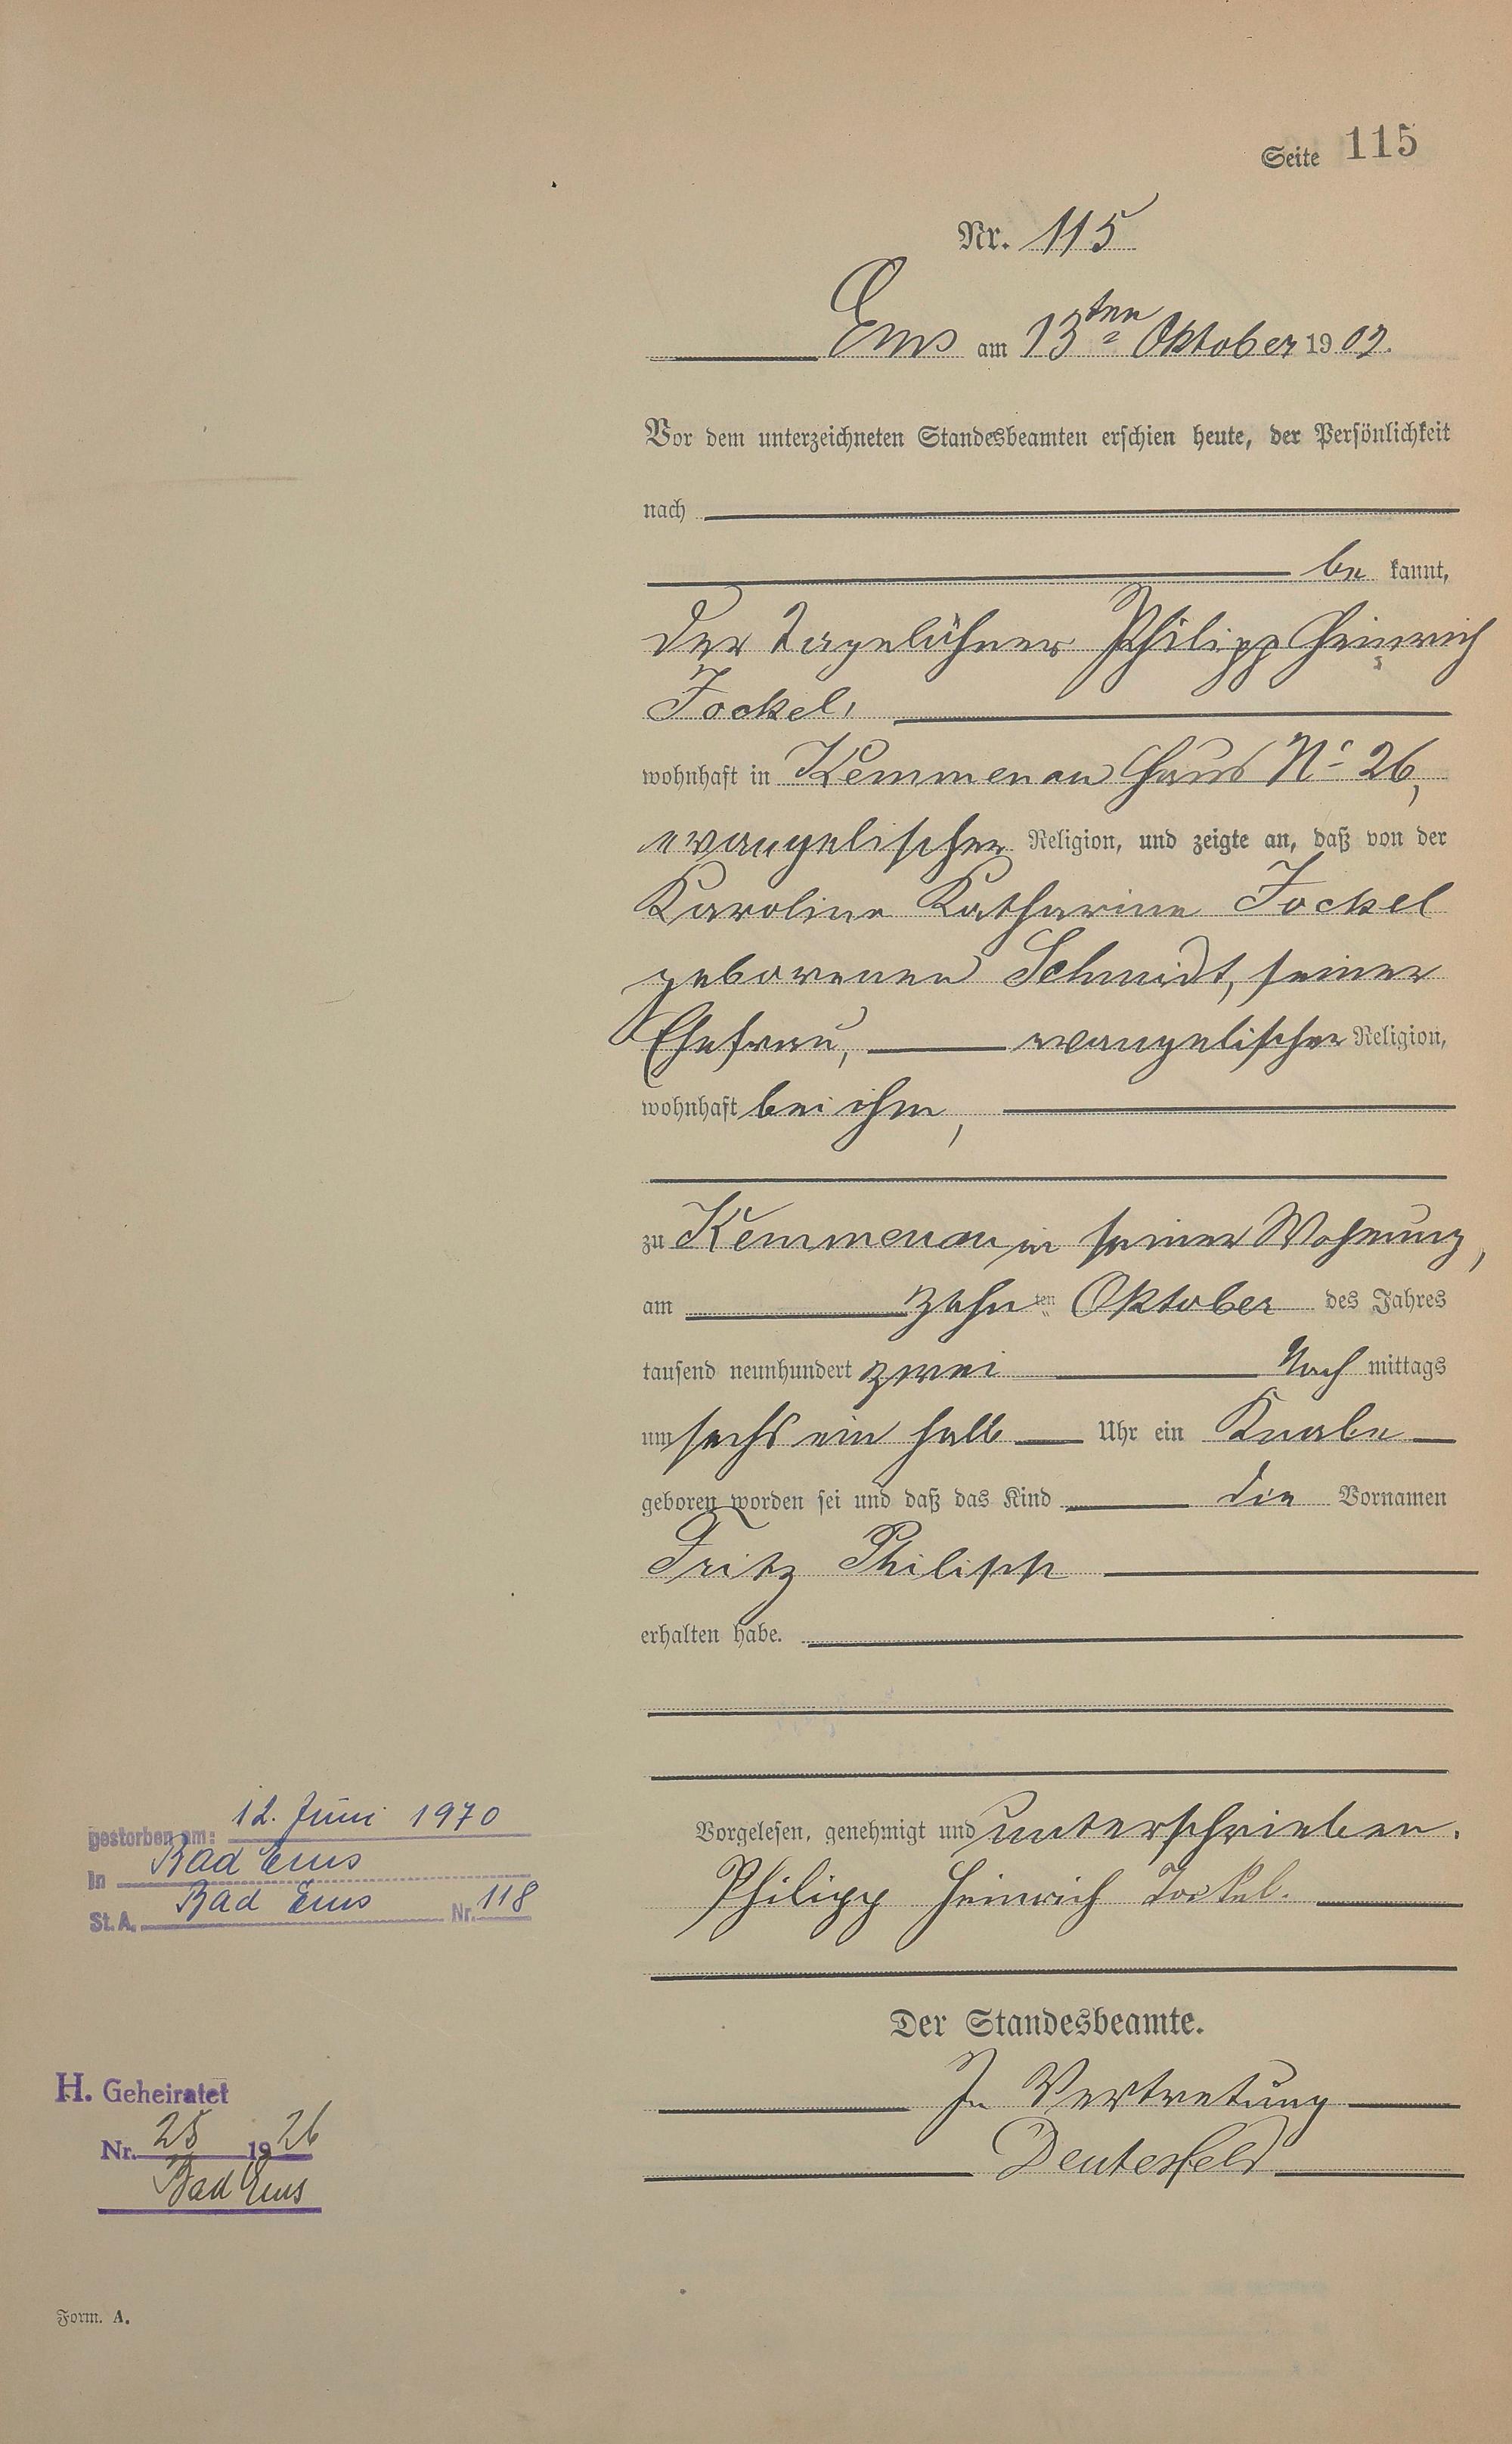 Seite 115
Nr. 115
Ems am 13ten Oktober 1902.
Vor dem unterzeichneten Standesbeamten erschien heute, der Persönlichkeit
nach
be kannt,
der Tagelöhner Philipp Heinrich
Jockel,
wohnhaft in Kemmenau Haus No 26,
evangelischer Religion, und zeigte an, daß von der
Karoline Katharine Jockel
geborenen Schmidt, seiner
Ehefrau, evangelischer Religion,
wohnhaft bei ihm,
zu Kemmenau in seiner Wohnung,
am zehnten Oktober des Jahres
tausend neunhundert zwei Nach mittags
um sechs ein halb Uhr ein Knabe
geboren worden sei und daß das Kind die Vornamen
Fritz Philipp
erhalten habe.
Vorgelesen, genehmigt und unterschrieben.
Philipp Heinrich Jockel.
Der Standesbeamte.
In Vertretung
Deutesfeld
gestorben am: 12. Juni 1970
In Bad Ems
St. A. Bad Ems Nr. 118
H. Geheiratet
Nr. 25 1926
Bad Ems
Form. A.